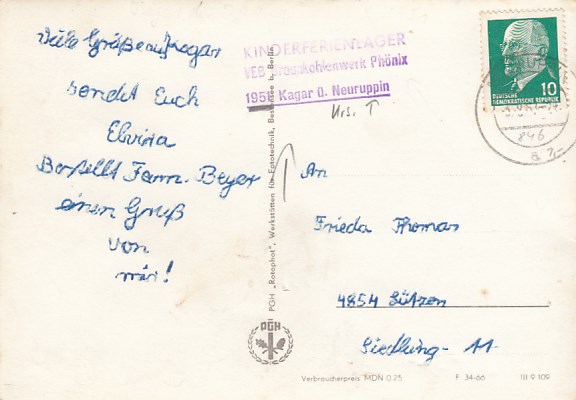 Viele Grüße aus Kagar
sendet Euch
Elvira
Bestellt Fam. Beyer
einen Gruß
von
mir!
KINDERFERIENLAGER
VEB Braunkohlenwerk Phönix
1951 Kagar ü. Neuruppin
Urs. T
DEUTSCHE
DEMOKRATISCHE REPUBLIK
10
846
a
An
Frieda Thomas
4854 Lützen
Siedlung 11
PGH „Rotophot", Werkstätten für Fototechnik, Bestensee b. Berlin
PGH
Verbraucherpreis MDN 0.25
F 34-66
III 9 109